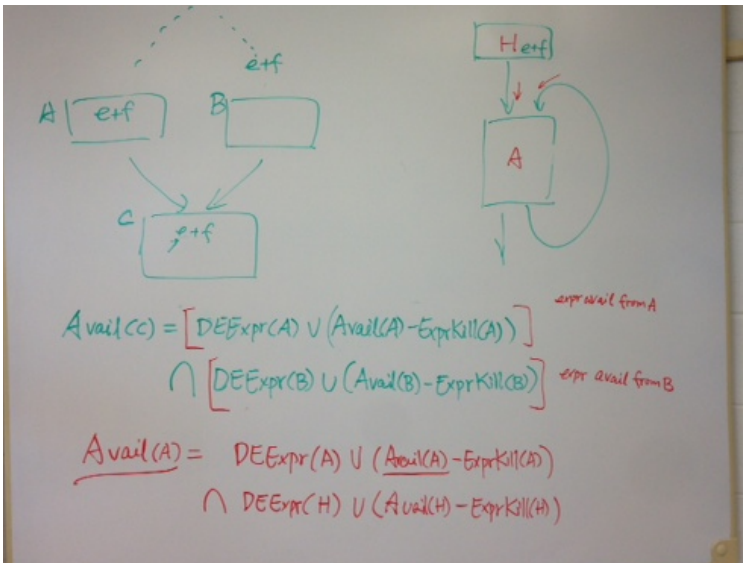 e+f
A e+f
B
C e+f
H e+f
A
Avail(C) = [DEExpr(A) ∪ (Avail(A)-ExprKill(A))] expr avail from A
∩ [DEExpr(B) ∪ (Avail(B)-ExprKill(B))] expr avail from B
Avail(A) = DEExpr(A) ∪ (Avail(A)-ExprKill(A))
∩ DEExpr(H) ∪ (Avail(H)-ExprKill(H))